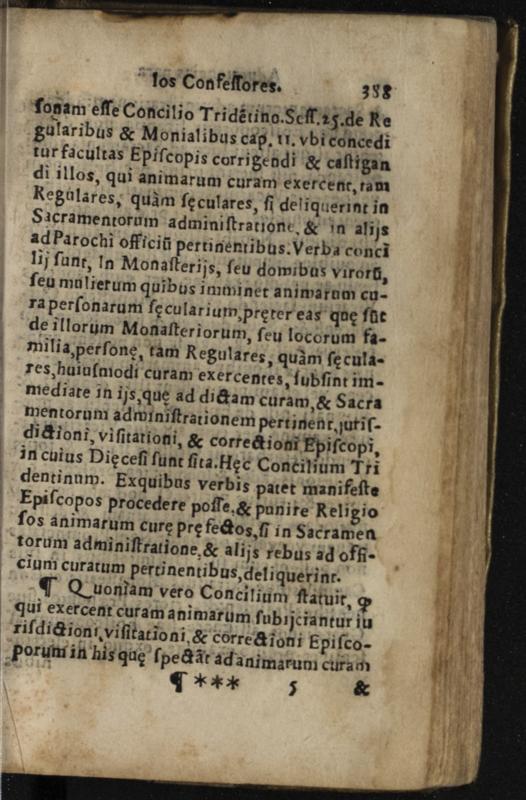 los Confeſſores. 388
ſonam eſſe Concilio Tridẽtino.Seſſ.25.de Re
gularibus & Monialibus cap. 11. vbi concedi
tur facultas Epiſcopis corrigendi & caſtigan
di illos, qui animarum curam exercent, tam
Regulares, quàm ſęculares, ſi deliquerint in
Sacramentorum adminiſtratione, & in alijs
ad Parochi officiũ pertinentibus. Verba conci
lij ſunt, In Monaſterijs, ſeu domibus virorũ,
ſeu mulierum quibus imminet animarum cu-
ra perſonarum ſęcularium, pręter eas quę ſũt
de illorum Monaſteriorum, ſeu locorum fa-
milia, perſonę, tam Regulares, quàm ſęcula-
res, huiuſmodi curam exercentes, ſubſint im-
mediate in ijs, quę ad dictam curam, & Sacra
mentorum adminiſtrationem pertinent, juriſ-
dictioni, viſitationi, & correctioni Epiſcopi,
in cuius Dięceſi ſunt ſita. Hęc Concilium Tri
dentinum. Exquibus verbis patet manifeſte
Epiſcopos procedere poſſe, & punire Religio
ſos animarum curę pręfectos, ſi in Sacramen
torum adminiſtratione, & alijs rebus ad offi-
cium curatum pertinentibus, deliquerint.
¶ Quoniam vero Concilium ſtatuit, ꝙ
qui exercent curam animarum ſubijciantur iu
riſdictioni, viſitationi, & correctioni Epiſco-
porum in his quę ſpectãt ad animarum curam
¶ *** 5 &